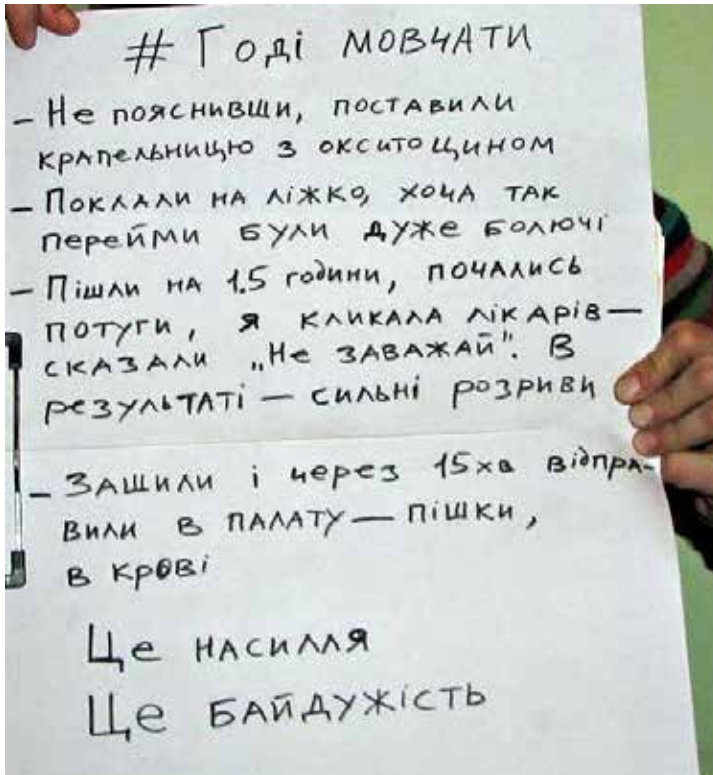 # Годі мовчати
- Не пояснивши, поставили
крапельницю з окситоцином
- Поклали на ліжко, хоча так
перейми були дуже болючі
- Пішли на 1.5 години, почались
потуги, я кликала лікарів —
сказали „Не заважай". В
результаті — сильні розриви
- Зашили і через 15хв відпра-
вили в палату — пішки,
в крові
Це насилля
Це байдужість